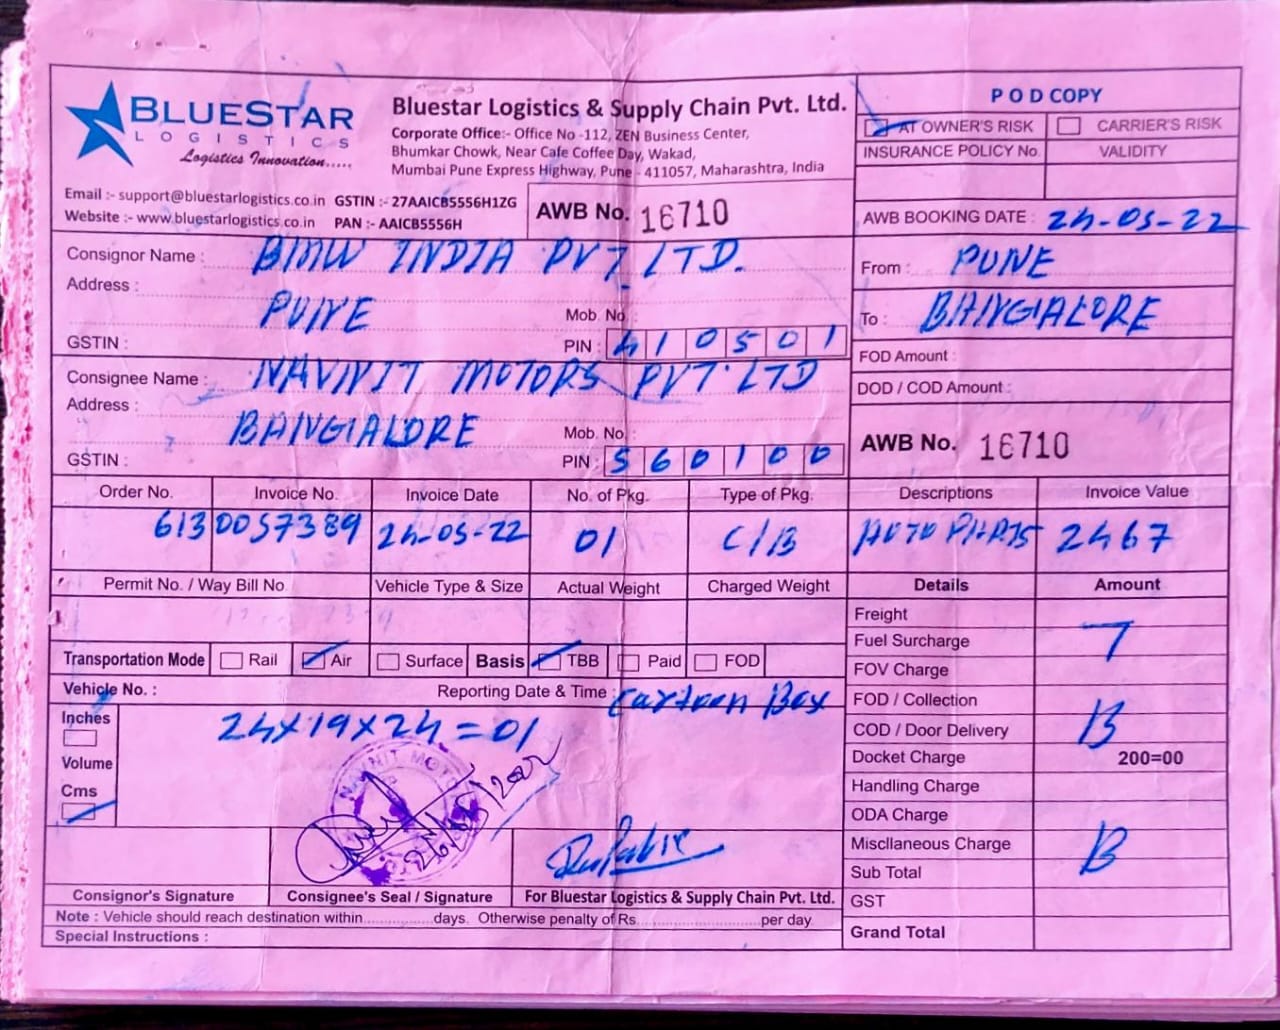 BLUESTAR
LOGISTICS
Logistics Innovation.....
Bluestar Logistics & Supply Chain Pvt. Ltd.
Corporate Office:- Office No -112, ZEN Business Center,
Bhumkar Chowk, Near Cafe Coffee Day, Wakad,
Mumbai Pune Express Highway, Pune - 411057, Maharashtra, India
Email :- support@bluestarlogistics.co.in GSTIN :- 27AAICB5556H1ZG
Website :- www.bluestarlogistics.co.in PAN :- AAICB5556H
AWB No. 16710
POD COPY
AT OWNER'S RISK CARRIER'S RISK
INSURANCE POLICY No. VALIDITY
AWB BOOKING DATE : 24-05-22
Consignor Name : BMW INDIA PVT LTD.
Address :
PUNE Mob. No. :
GSTIN : PIN : 410501
From : PUNE
To : BANGALORE
FOD Amount :
DOD / COD Amount :
Consignee Name : NAVNIT MOTORS PVT. LTD
Address :
BANGALORE Mob. No. :
GSTIN : PIN : 560100
AWB No. 16710
Order No. Invoice No. Invoice Date No. of Pkg. Type of Pkg. Descriptions Invoice Value
6130057389 24-05-22 01 C/B AUTO PARTS 2467
Permit No. / Way Bill No. Vehicle Type & Size Actual Weight Charged Weight Details Amount
Freight
Fuel Surcharge T
FOV Charge
FOD / Collection
COD / Door Delivery B
Docket Charge 200=00
Handling Charge
ODA Charge
Miscllaneous Charge B
Sub Total
GST
Grand Total
Transportation Mode Rail Air Surface Basis TBB Paid FOD
Vehicle No. : Reporting Date & Time : Cartoon Box
Inches
24x19x24=01
Volume
Cms
Consignor's Signature Consignee's Seal / Signature For Bluestar Logistics & Supply Chain Pvt. Ltd.
Note : Vehicle should reach destination within..............days. Otherwise penalty of Rs..........................per day
Special Instructions :